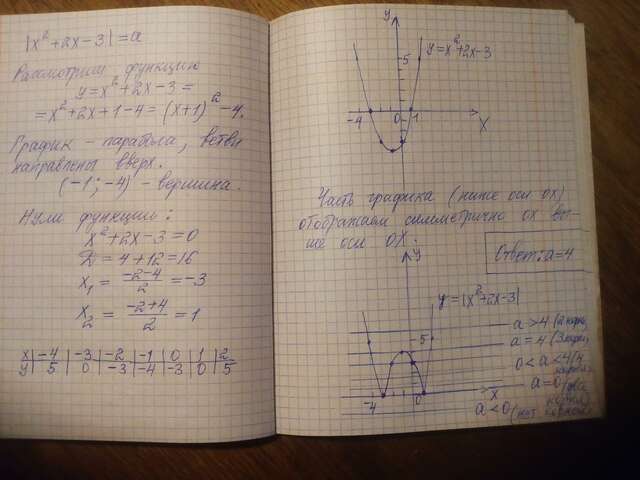 |x²+2x-3|=a
Рассмотрим функцию
y=x²+2x-3=
=x²+2x+1-4=(x+1)²-4.
График - парабола, ветви
направлены вверх.
(-1;-4) - вершина.
Нули функции:
x²+2x-3=0
D=4+12=16
x₁=(-2-4)/2=-3
x₂=(-2+4)/2=1
x|-4|-3|-2|-1|0|1|2
y|5|0|-3|-4|-3|0|5
y
y=x²+2x-3
5
-4 0 1
x
Часть графика (ниже оси ox)
отображаем симметрично ox вы-
ше оси OX.
Ответ: a=4
y
y=|x²+2x-3|
a>4 (2 корня)
5
a=4 (3 корня)
0<a<4 (4
корня)
a=0 (два
корня)
-4 0 x
a<0 (нет корней)